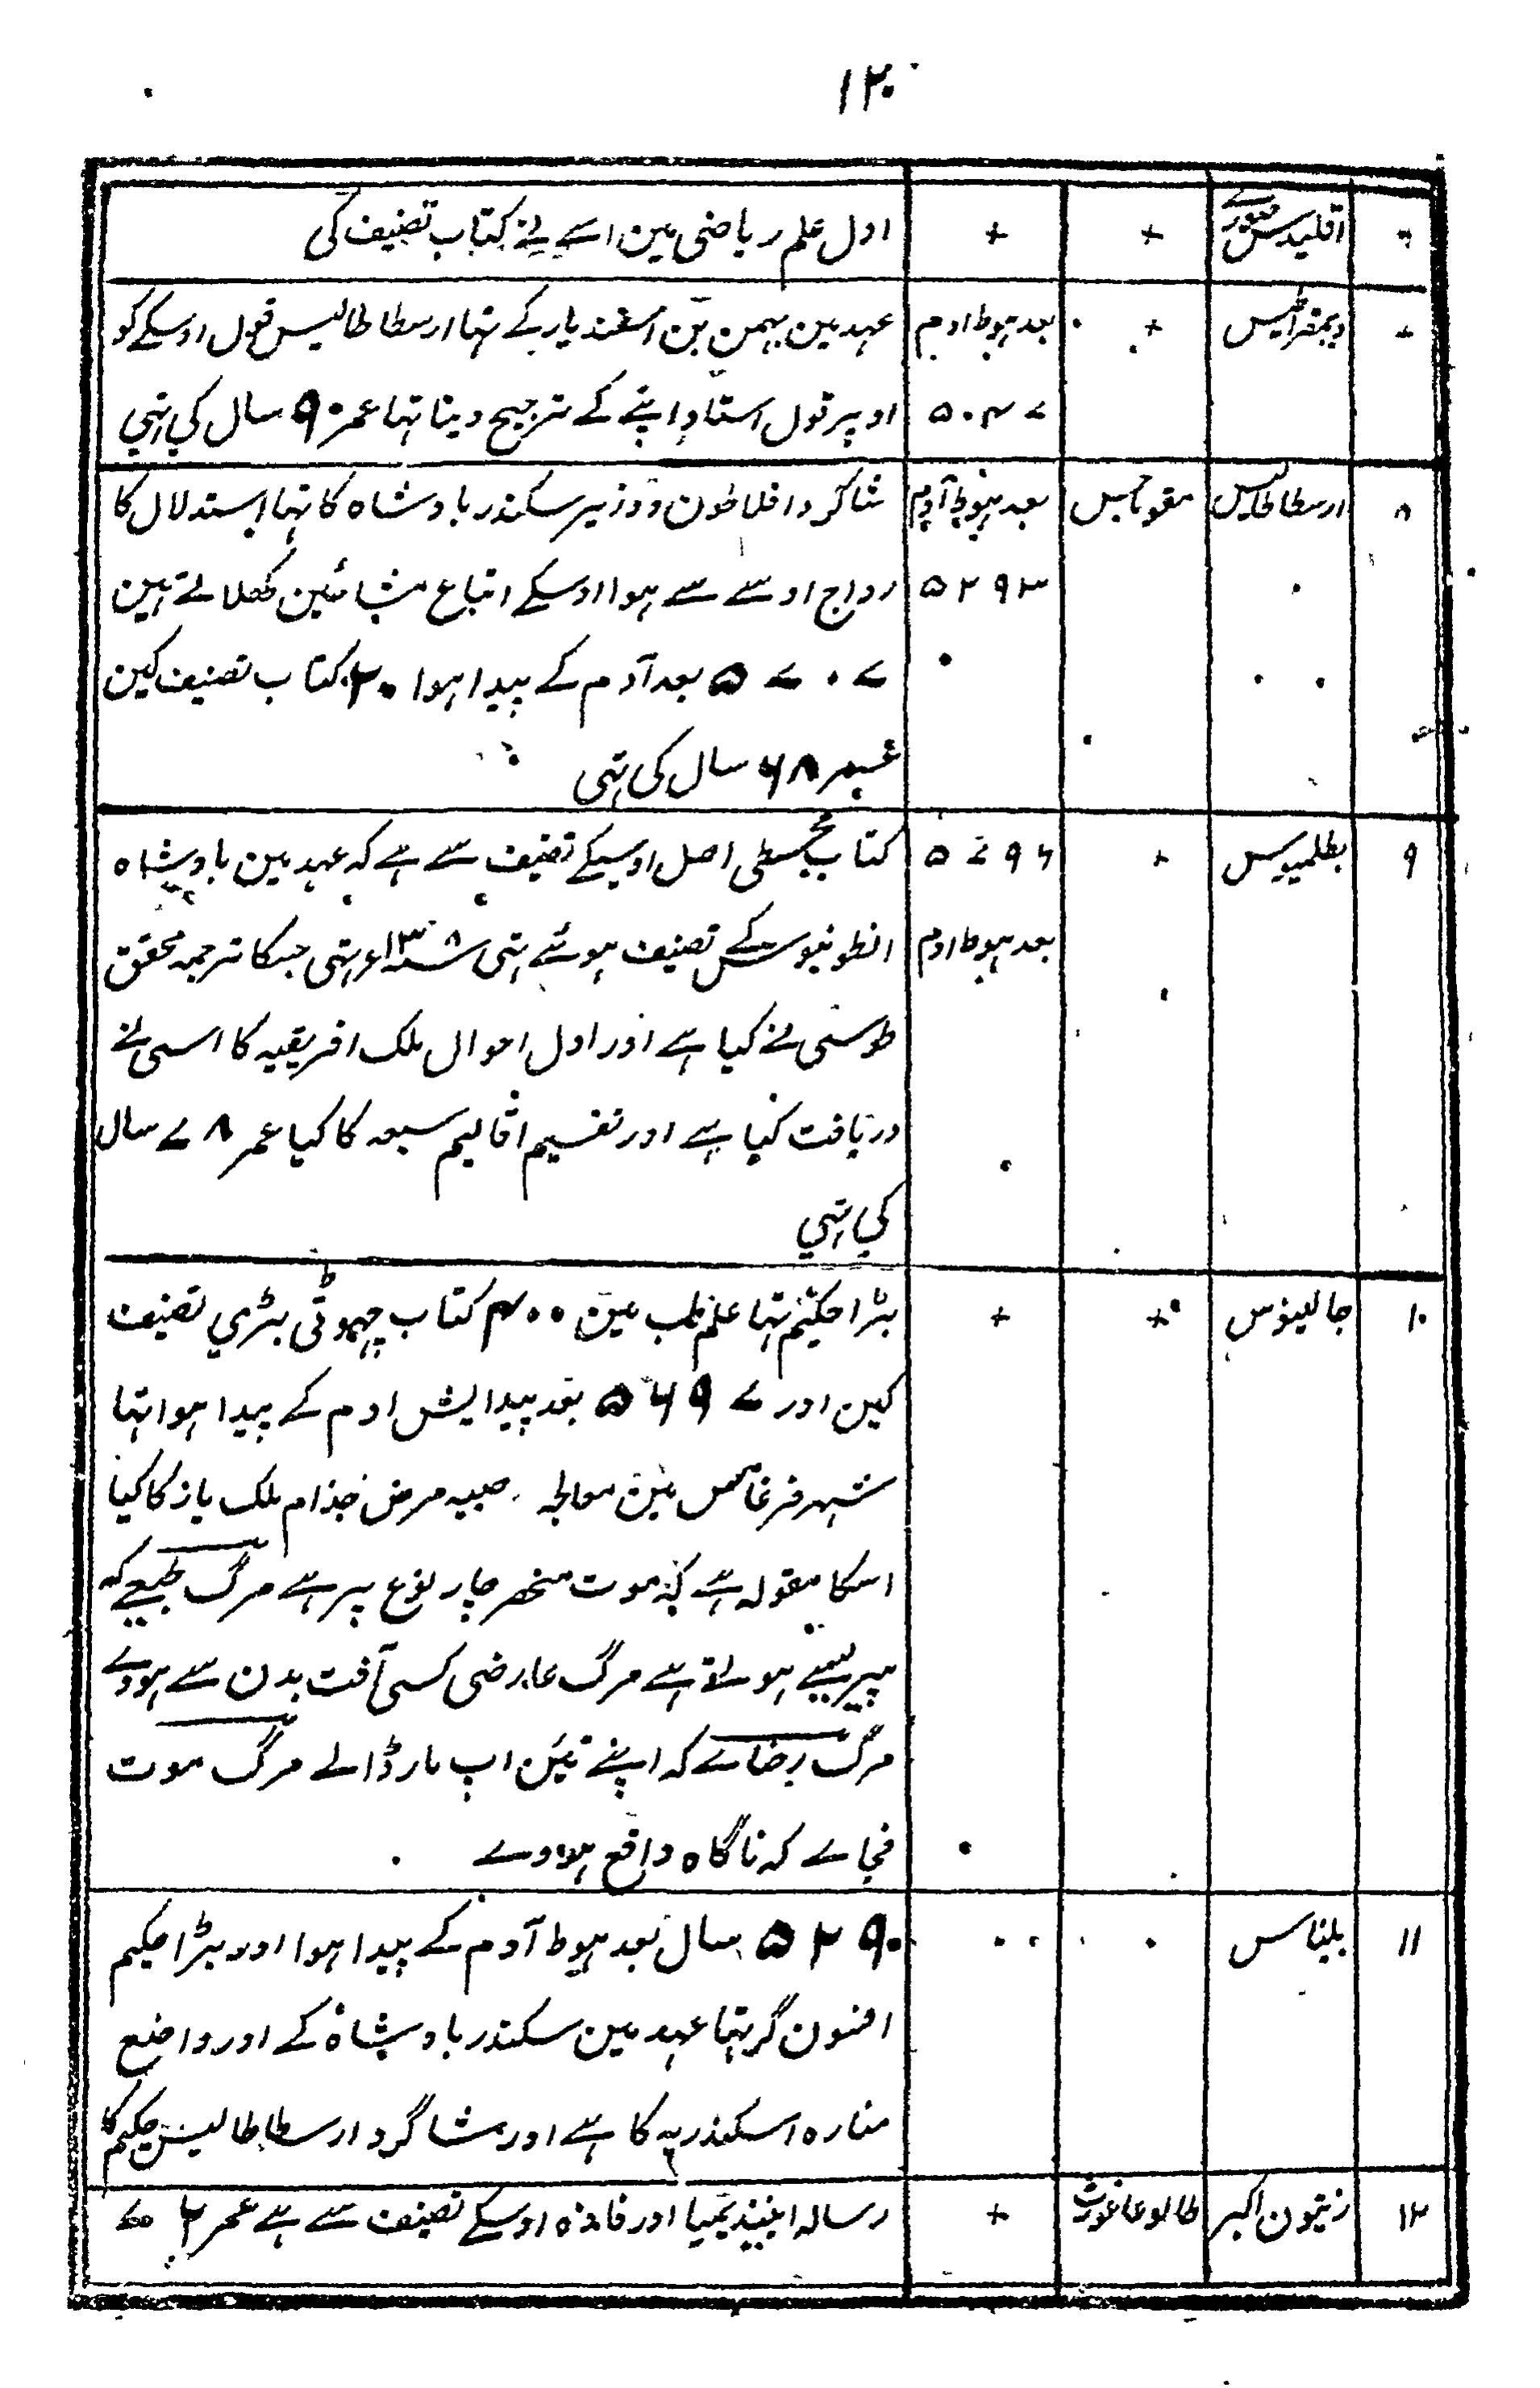 ۱۲۰
۶ اقلیدس صوری + + اول علم ریاضی مین اسے نے کتاب تصنیف کی
۷ دیمقراطیس + بعد ہبوط ادم عہد مین بہمن بن اسفندیار کے تہا ارسطاطالیس قول اوسکے کو
۵۰۴۷ اوپر قول استاد اپنے کے ترجیح دیتا تہا عمر ۹۰ سال کی تہی
۸ ارسطاطالیس نیقوماجس بعد ہبوط آدم شاگرد افلاطون و وزیر سکندر بادشاہ کا تہا استدلال کا
۵۲۹۳ رواج اوسے سے ہوا اوسکے اتباع مشائین کھلاتے ہین
۵۷۰۷ بعد آدم کے پیدا ہوا ۱۲۰ کتاب تصنیف کین
عمر ۶۸ سال کی تہی
۹ بطلمیوس + ۵۷۹۶ کتاب مجسطی اصل اوسیکے تصنیف سے ہے کہ عہد مین بادشاہ
بعد ہبوط ادم انطونیوس کے تصنیف ہوئے تہی سنہ ۱۳۸ء تہی جسکا ترجمہ محقق
طوسی نے کیا ہے اور اول احوال ملک افریقیہ کا اسی نے
دریافت کیا ہے اور تقسیم اقالیم سبعہ کا کیا عمر ۷۸ سال
کی تہی
۱۰ جالینوس + + بڑا حکیم تہا علم طب مین ۴۰۰ کتاب چہوٹی بڑی تصنیف
کین اور ۵۶۹۷ بعد پیدایش ادم کے پیدا ہوا تہا
شہر فرغامس مین معالجہ مرض جذام ملک یاز کا کیا
اسکا مقولہ ہے کہ موت منحصر چار نوع پر ہے مرگ طبیعے کہ
پیریسے ہوتے ہے مرگ عارضی کسی آفت بدن سے ہووے
مرگ رضاے کہ اپنے تئین اپ مار ڈالے مرگ موت
فجاے کہ ناگاہ واقع ہووے
۱۱ بلیناس ۵۲۹۰ سال بعد ہبوط آدم کے پیدا ہوا اور بڑا حکیم
افسون گر تہا عہد مین سکندر بادشاہ کے اور واضع
منارہ اسکندریہ کا ہے اور شاگرد ارسطاطالیس حکیم کا
۱۲ زیتون اکبر طالوغاغورث + رسالہ اور اوسکے تصنیف سے ہے عمر